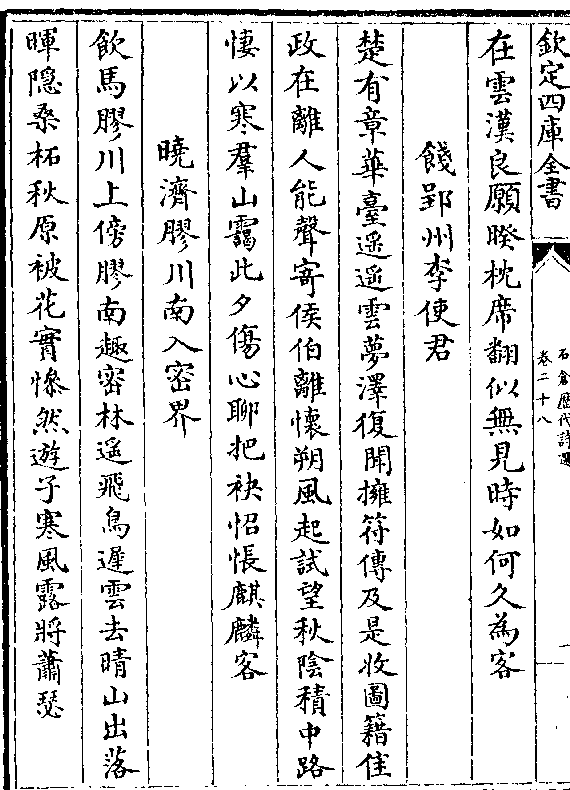 欽定四庫全書
石倉歷代詩選
卷二十八
在雲漢良願暌枕席翻似無見時如何久為客
餞郢州李使君
楚有章華臺遥遥雲夢澤復聞擁符傳及是收圖籍佳
政在離人能聲寄侯伯離懷朔風起試望秋陰積中路
悽以寒羣山靄此夕傷心聊把袂怊悵麒麟客
曉濟膠川南入密界
飲馬膠川上傍膠南趣密林遥飛鳥遲雲去晴山出落
暉隱桑柘秋原被花實慘然遊子寒風露將蕭瑟